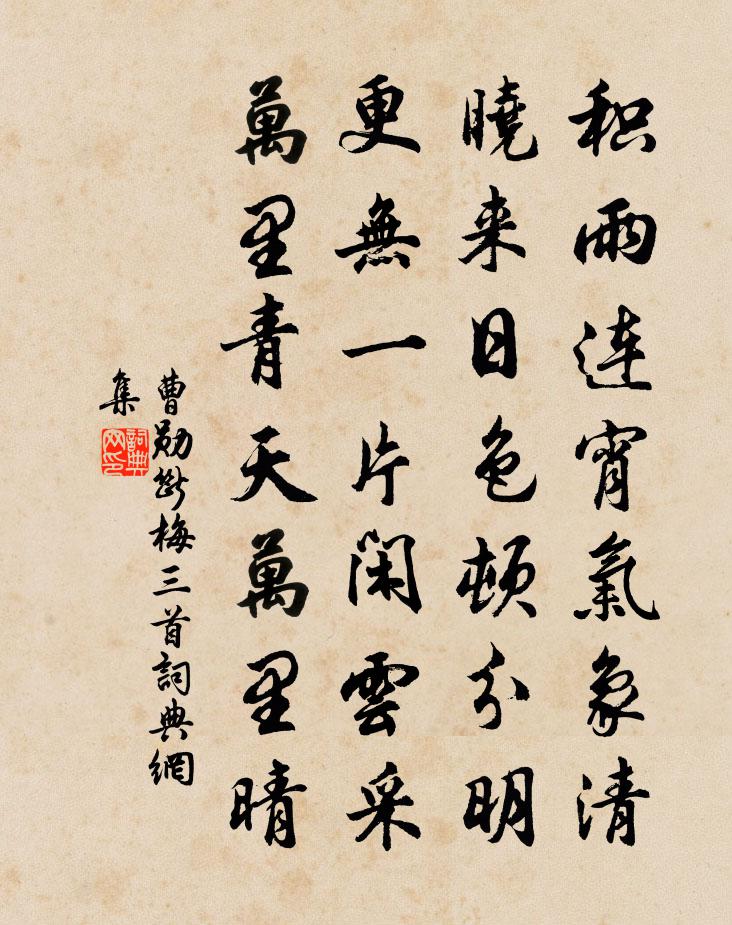 积雨连宵氣象清
曉来日色頓分明
更無一片閑雲采
萬里青天萬里晴
曹勋斷梅三首詞典網
集
詞典
网印